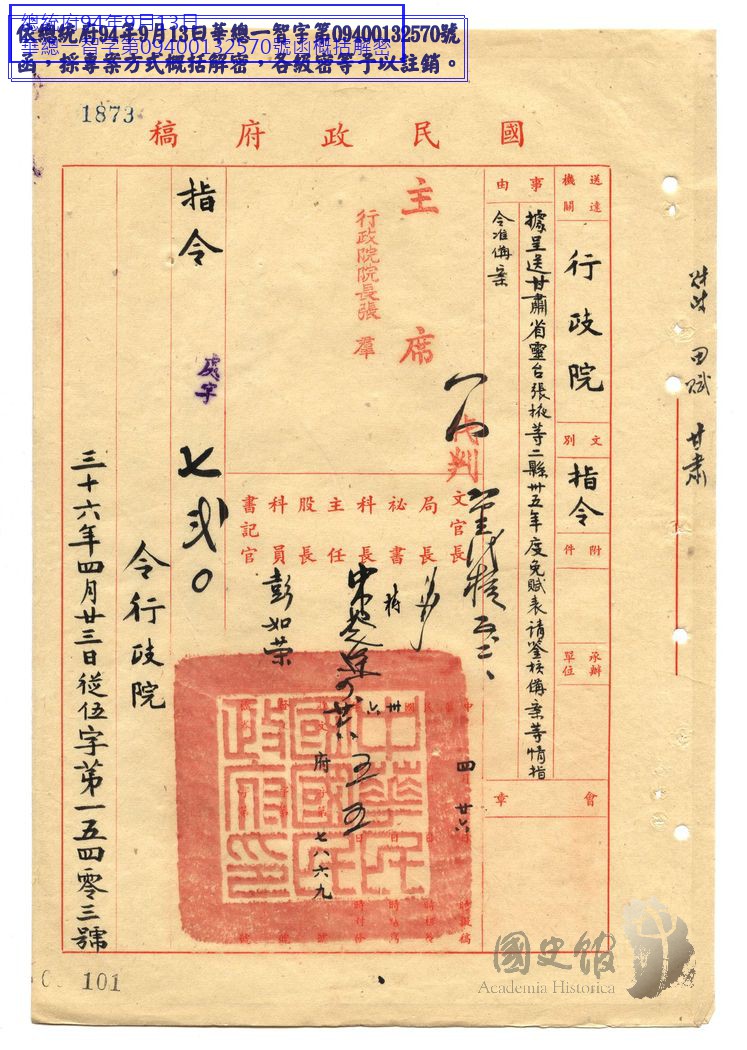 總統府94年9月13日
華總一智字第09400132570號函概括解密
依總統府94年9月13日華總一智字第09400132570號
函，採專案方式概括解密，各級密等予以註銷。
1873
國民政府稿
田賦 甘肅
送達機關
行政院
文別
指令
附件
承辦單位
事由
據呈送甘肅省靈台張掖等二縣卅五年度免賦表請鑒核備案等情指
令准備案
會章
主席
行政院院長張羣
代判
文官長
局長
祕書
科長
主任
股長
科員
書記官
彭如荣
四 廿六
五 五
府 七八六九
中華民國國民政府印
指令
處字
七弍〇
令行政院
三十六年四月廿三日從伍字第一五四零三號
101
國史館
Academia Historica